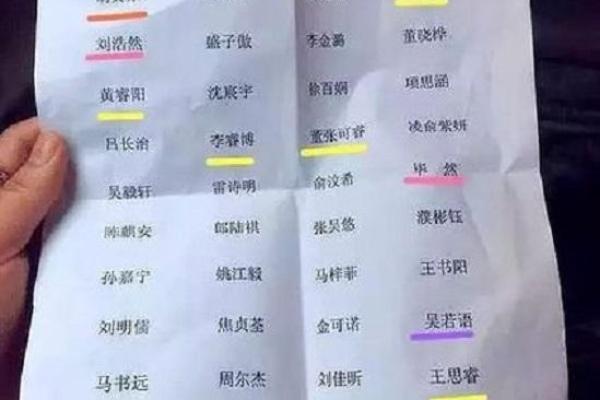 刘浩然 盛子傲 李金潞 董晓桦
黄睿阳 沈宸宇 徐百娴 项思涵
吕长治 李睿博 董张可睿 凌俞紫妍
吴毅轩 雷诗明 俞汶希 毕然
陈麒安 郎陆祺 张吴悠 濮彬钰
孙嘉宁 姚江毅 马梓菲 王书阳
刘明儒 焦贞基 金可诺 吴若语
马书远 周尔杰 刘佳昕 王思睿